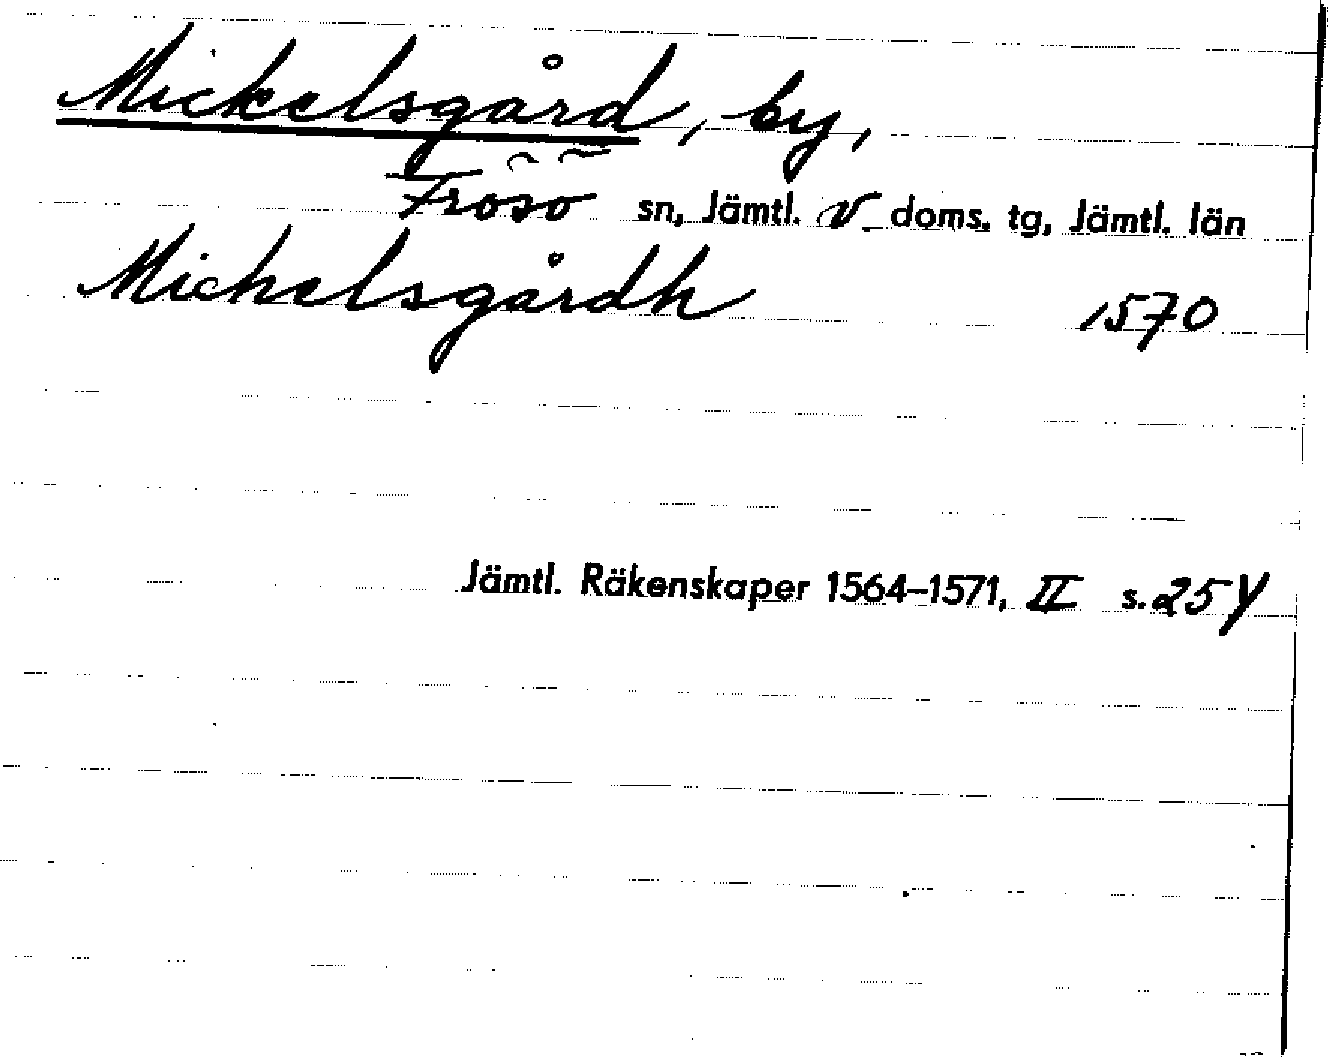 Mickelsgård, by,
Frösö sn, Jämtl. v doms. tg, Jämtl. län
Michelsgårdh 1570
Jämtl. Räkenskaper 1564–1571, II s. 254